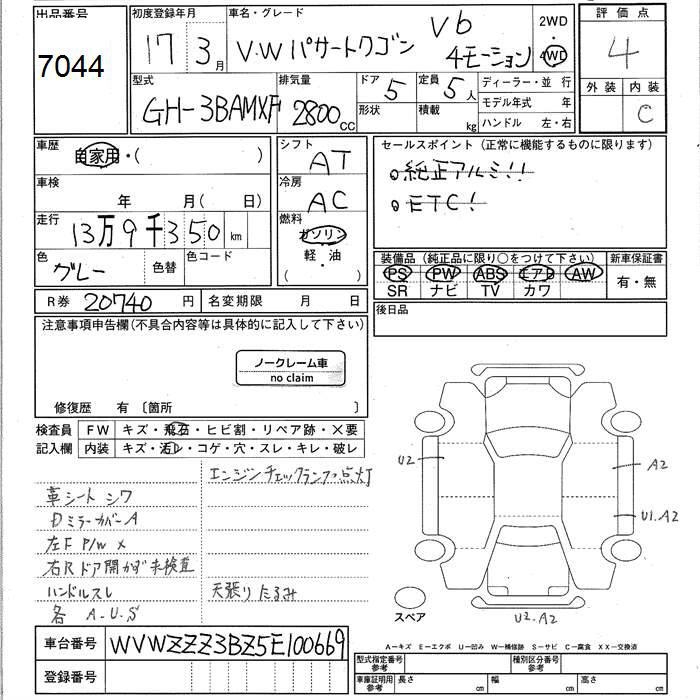 出品番号
7044
初度登録年月
17 3月
車名・グレード
V.W パサートワゴン V6 4モーション
2WD
4WD
評価点
4
外装 内装
C
型式
GH-3BAMXF
排気量
2800cc
ドア 5
形状
定員 5人
積載 kg
ディーラー・並行
モデル年式 年
ハンドル 左・右
車歴
自家用・( )
シフト
AT
セールスポイント(正常に機能するものに限ります)
○純正アルミ!!
○ETC!
車検
年 月( 日)
冷房
AC
走行
13万9千350km
燃料
ガソリン
軽・油
( )
色
グレー
色替
色コード
装備品(純正品に限り○をつけて下さい)
新車保証書
PS PW ABS エアB AW
SR ナビ TV カワ
有・無
R券 20740 円
名変期限 月 日
後日品
注意事項申告欄(不具合内容等は具体的に記入して下さい)
ノークレーム車
no claim
修復歴 有 〔箇所 〕
検査員
記入欄
FW キズ・飛石・ヒビ割・リペア跡・×要
内装 キズ・汚レ・コゲ・穴・スレ・キレ・破レ
エンジンチェックランプ点灯
革シート シワ
Dミラーカバー A
左F P/W ×
右Rドア開かず未検査
ハンドルスレ
天張りたるみ
各 A.U.S
U2
A2
U1.A2
U2.A2
スペア
車台番号 WVWZZZ3BZ5E100669
登録番号
A-キズ E-エクボ U-凹み W-補修跡 S-サビ C-腐食 XX-交換済
型式指定番号
参考
種別区分番号
参考
車庫証明用
参考
長さ cm
幅 cm
高さ cm